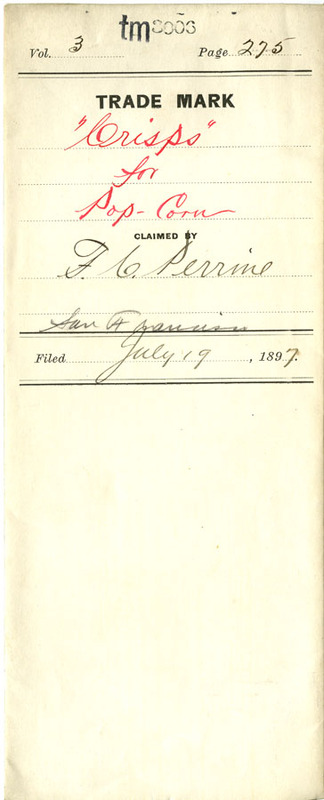 tm
Vol. 3 Page 275
TRADE MARK
"Crisps"
for
Pop-Corn
CLAIMED BY
F. C. Perrine
San Francisco
Filed July 19, 1897.